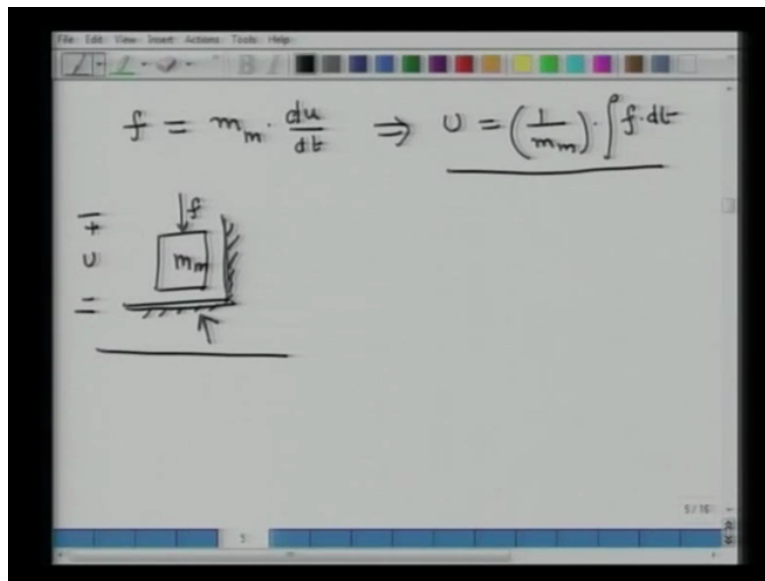 File Edit View Insert Actions Tools Help
B I
f = m_m · du/dt ⇒ U = (1/m_m) · ∫ f · dt
f
+
U
m_m
5/16
5